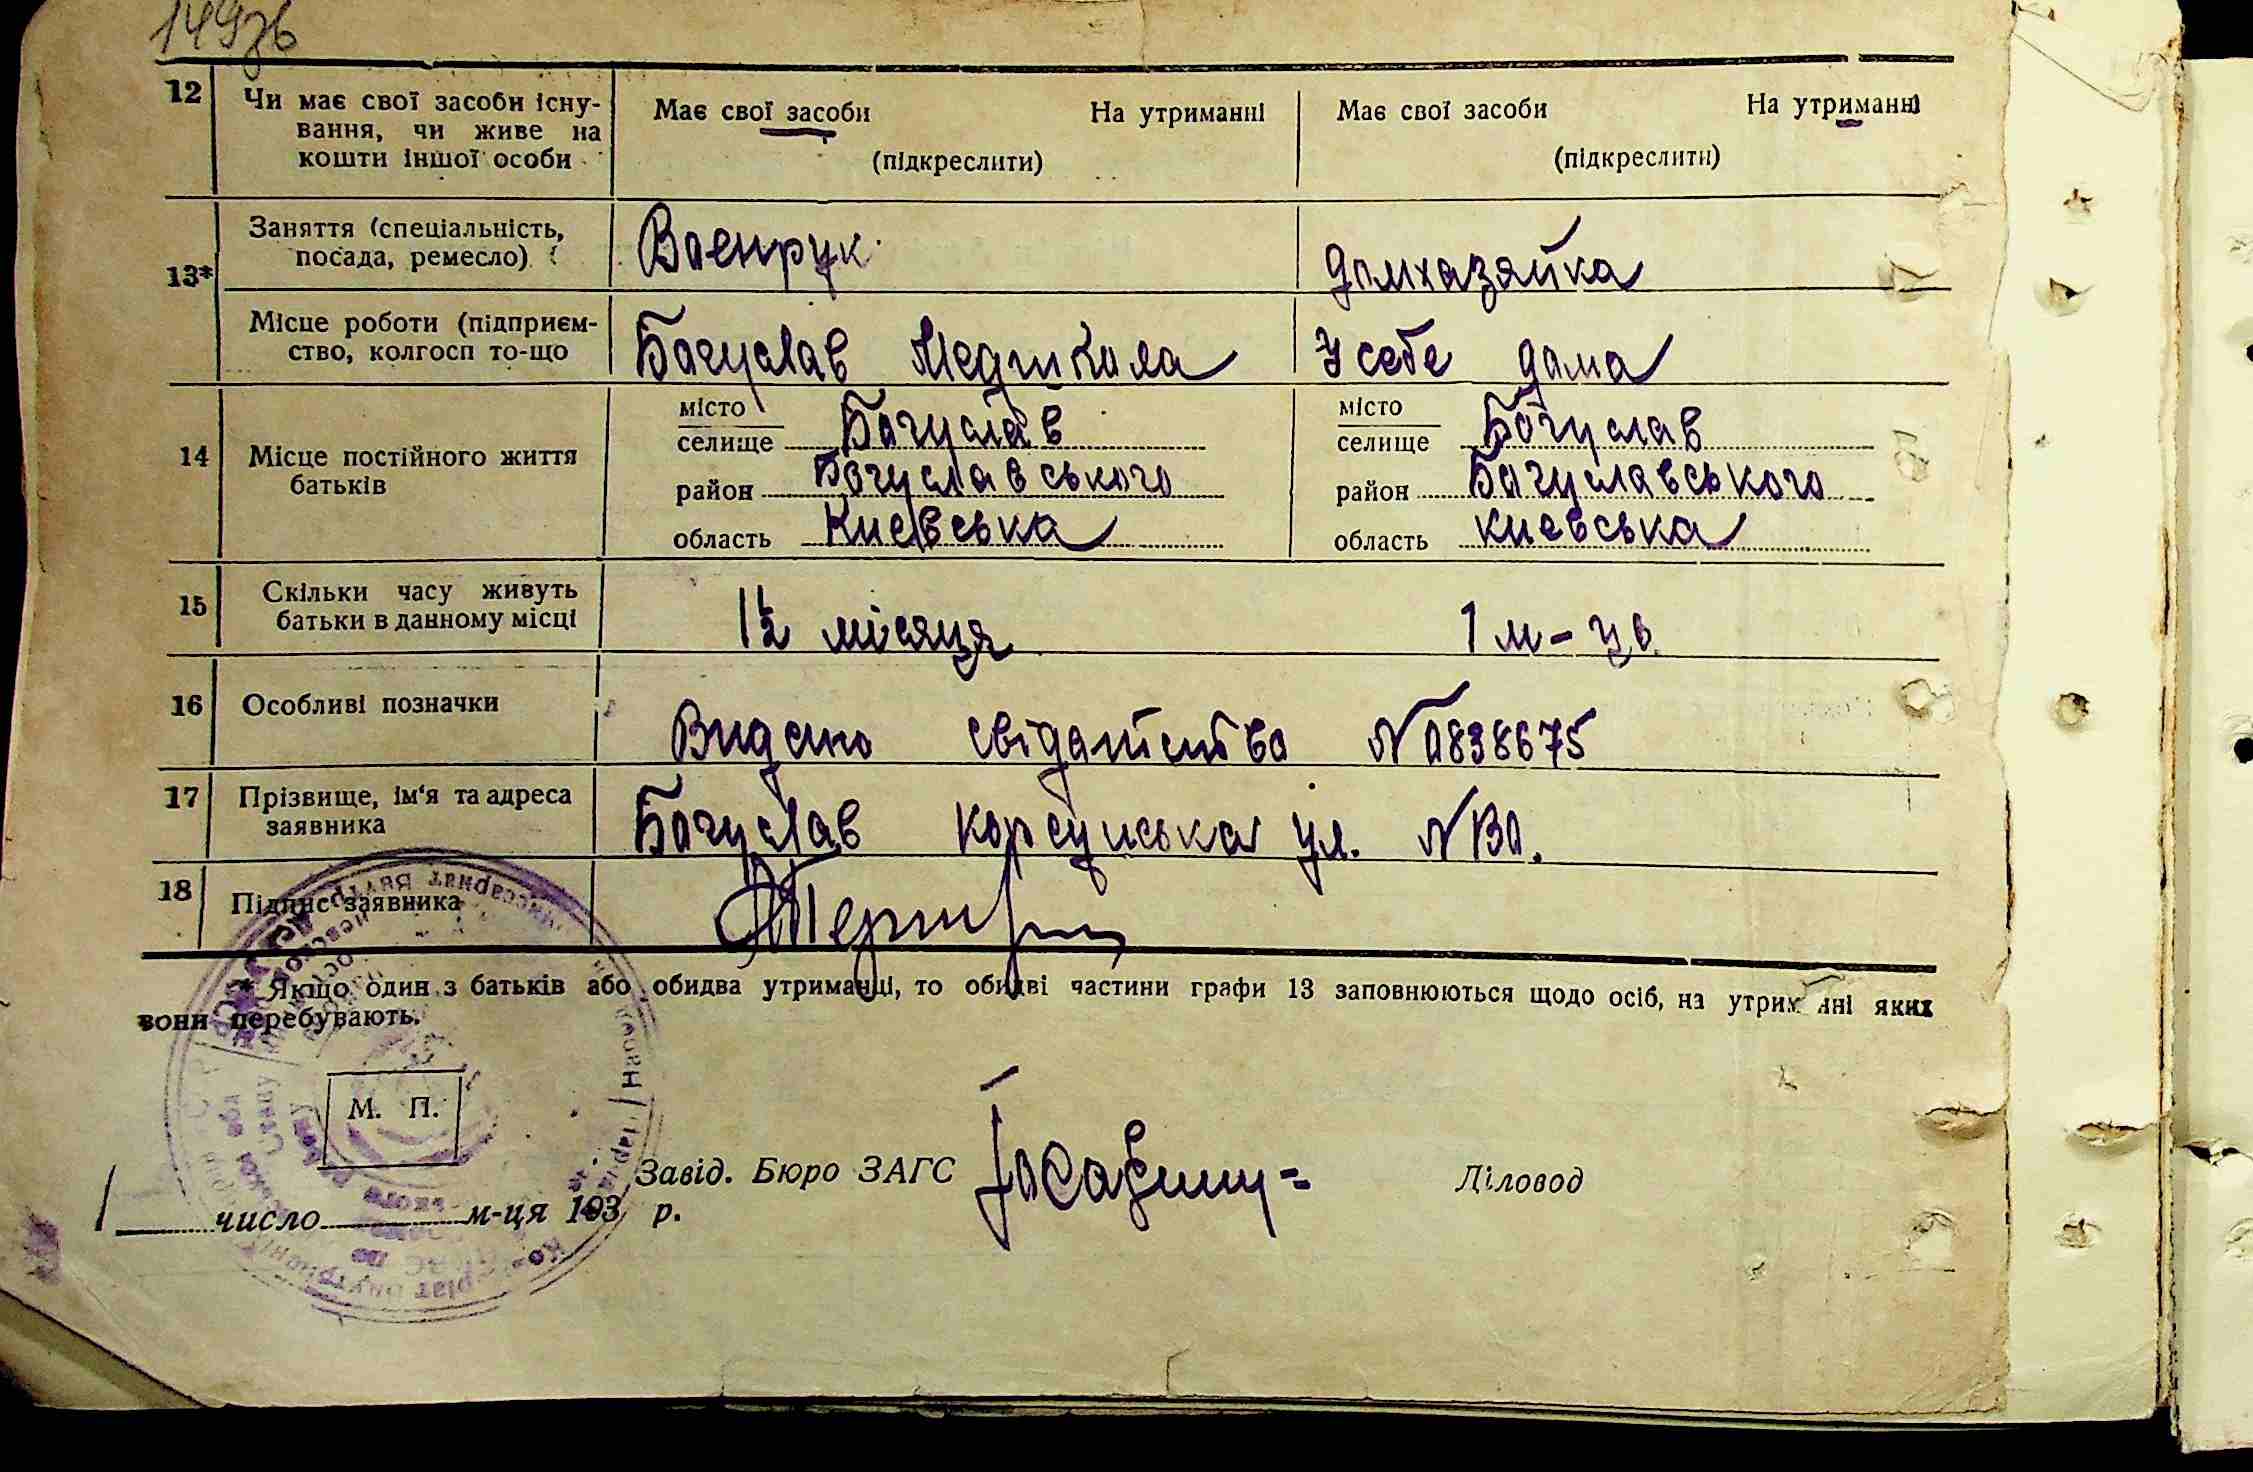 149зв
12 Чи має свої засоби існу-
вання, чи живе на
кошти іншої особи
Має свої засоби На утриманні
(підкреслити)
Має свої засоби На утриманні
(підкреслити)
13* Заняття (спеціальність,
посада, ремесло)
Военрук
домхазяйка
Місце роботи (підприєм-
ство, колгосп то-що
Богуслав Медшкола
У себе дома
14 Місце постійного життя
батьків
місто
селище Богуслав
район Богуславського
область Киевська
місто
селище Богуслав
район Богуславського
область киевська
15 Скільки часу живуть
батьки в данному місці
1½ місяця
1 м-ць
16 Особливі позначки
Видано свідоптство №0838675
17 Прізвище, ім'я та адреса
заявника
Богуслав Корсунська ул. №30.
18 Підпис заявника
* Якщо один з батьків або обидва утриманці, то обидві частини графи 13 заповнюються щодо осіб, на утриманні яких
вони перебувають.
М. П.
Завід. Бюро ЗАГС
Діловод
число м-ця 193 р.